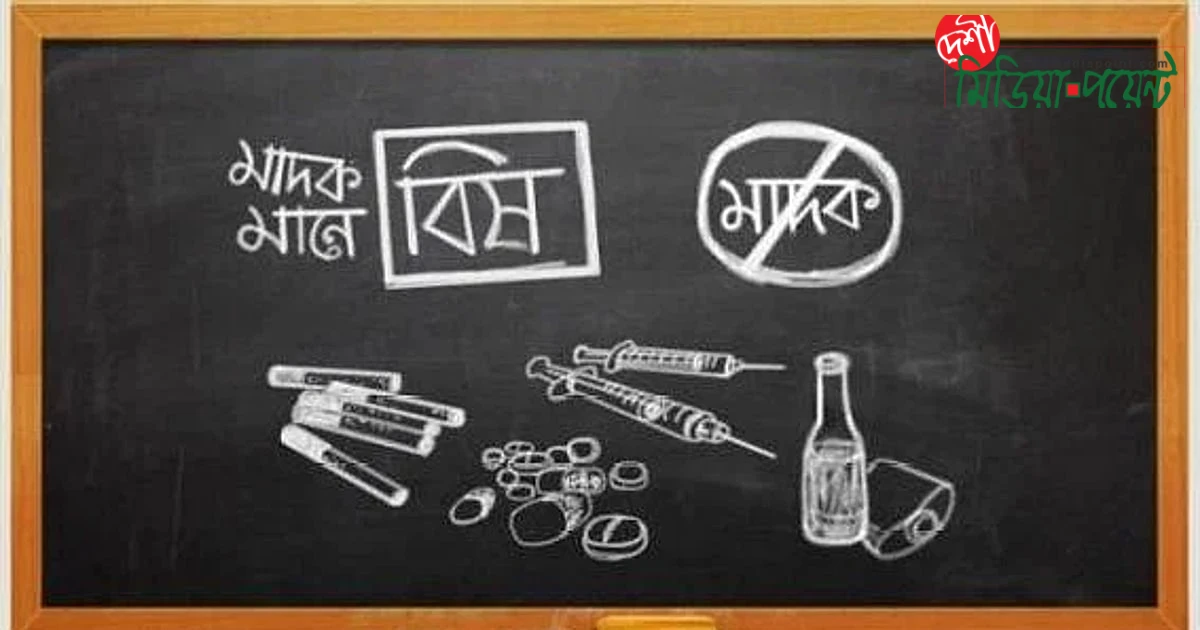 দেশী
মিডিয়া পয়েন্ট
মাদক
মানে
বিষ
মাদক